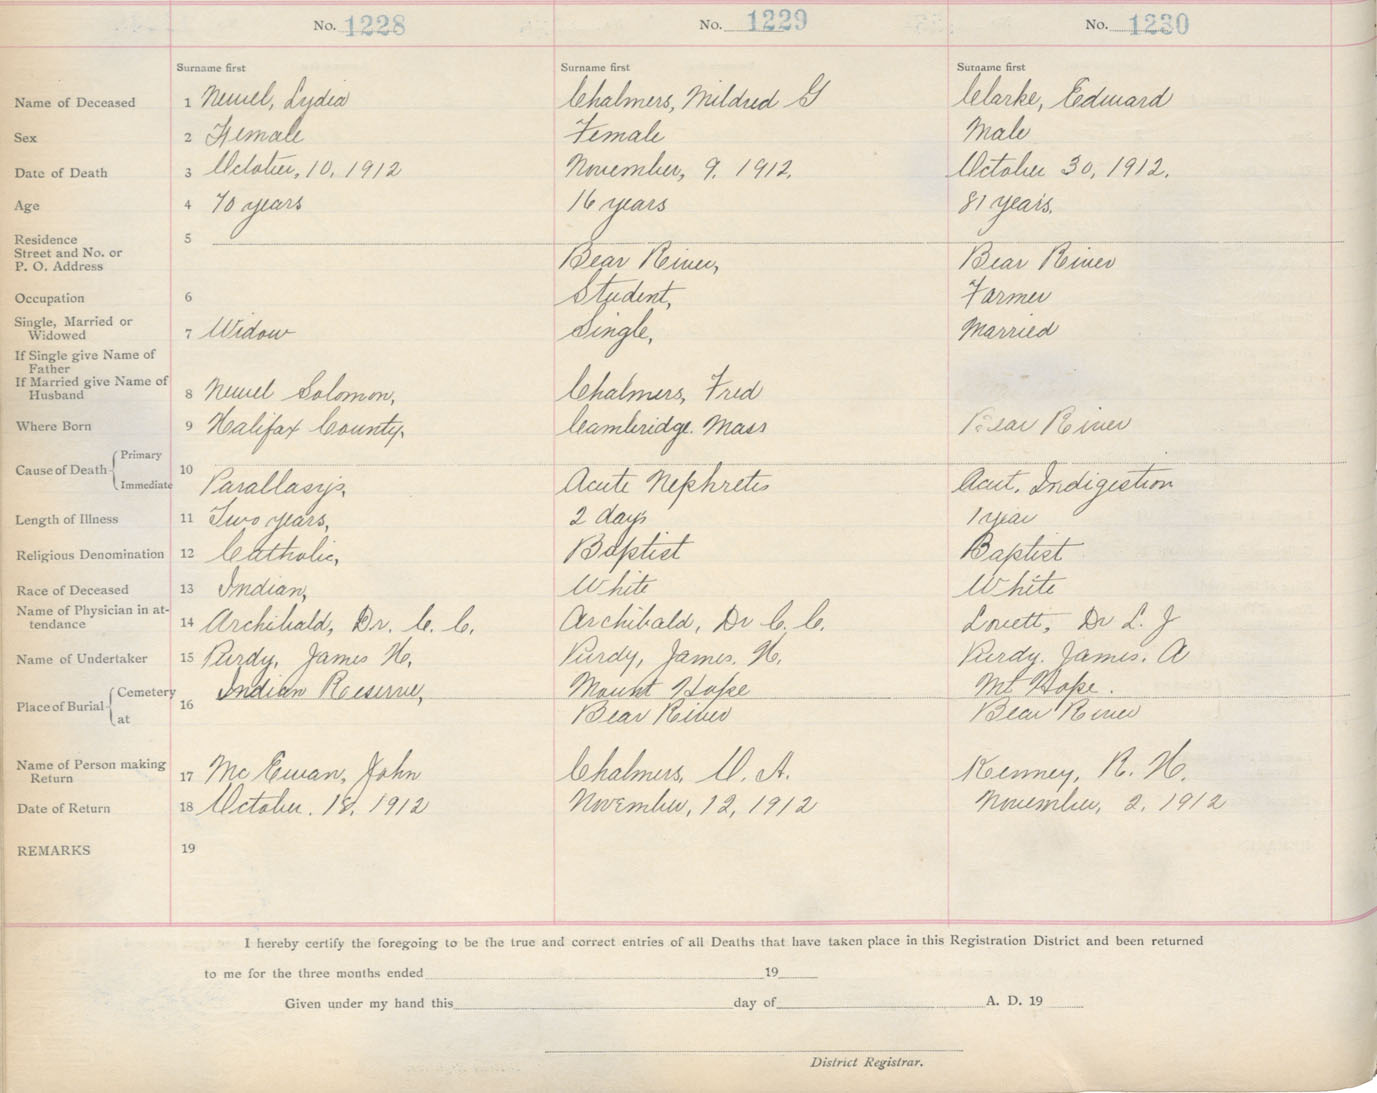 No. 1228 No. 1229 No. 1230
Surname first Surname first Surname first
Name of Deceased 1 Newel, Lydia Chalmers, Mildred G Clarke, Edward
Sex 2 Female Female Male
Date of Death 3 October, 10, 1912 November, 9, 1912. October 30, 1912.
Age 4 70 years 16 years 81 years.
Residence 5
Street and No. or
P. O. Address Bear River, Bear River
Occupation 6 Student, Farmer
Single, Married or
Widowed 7 Widow Single, Married
If Single give Name of
Father
If Married give Name of
Husband 8 Newel Solomon, Chalmers, Fred
Where Born 9 Halifax County, Cambridge. Mass Bear River
Cause of Death Primary 10
Immediate Parallasys, Acute Nephretis Acut. Indigestion
Length of Illness 11 Two years, 2 days 1 year
Religious Denomination 12 Catholic, Baptist Baptist
Race of Deceased 13 Indian, White White
Name of Physician in at-
tendance 14 Archibald, Dr. C. C. Archibald, Dr C. C. Lovett, Dr L. J
Name of Undertaker 15 Purdy, James H, Purdy, James. H. Purdy. James. A
Place of Burial Cemetery 16 Indian Reserve, Mount Hope Mt Hope.
at Bear River Bear River
Name of Person making
Return 17 Mc Ewan, John Chalmers, W. A. Kenney, R. H.
Date of Return 18 October. 18, 1912 November, 12, 1912 November, 2, 1912
REMARKS 19
I hereby certify the foregoing to be the true and correct entries of all Deaths that have taken place in this Registration District and been returned
to me for the three months ended 19
Given under my hand this day of A. D. 19
District Registrar.